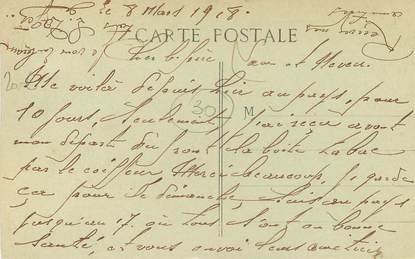 le 8 Mars 1918.
CARTE POSTALE
Cher et Neveu.
Me voilà depuis hier au pays, pour
10 jours, seulement, j'ai reçu avant
mon départ du front la boite tabac
par le coiffeur, Merci beaucoup, je garde
ça pour le dimanche, suis au pays
jusqu'au 17. où tous sont en bonne
santé, et vous envoi leurs amitiés
30
M